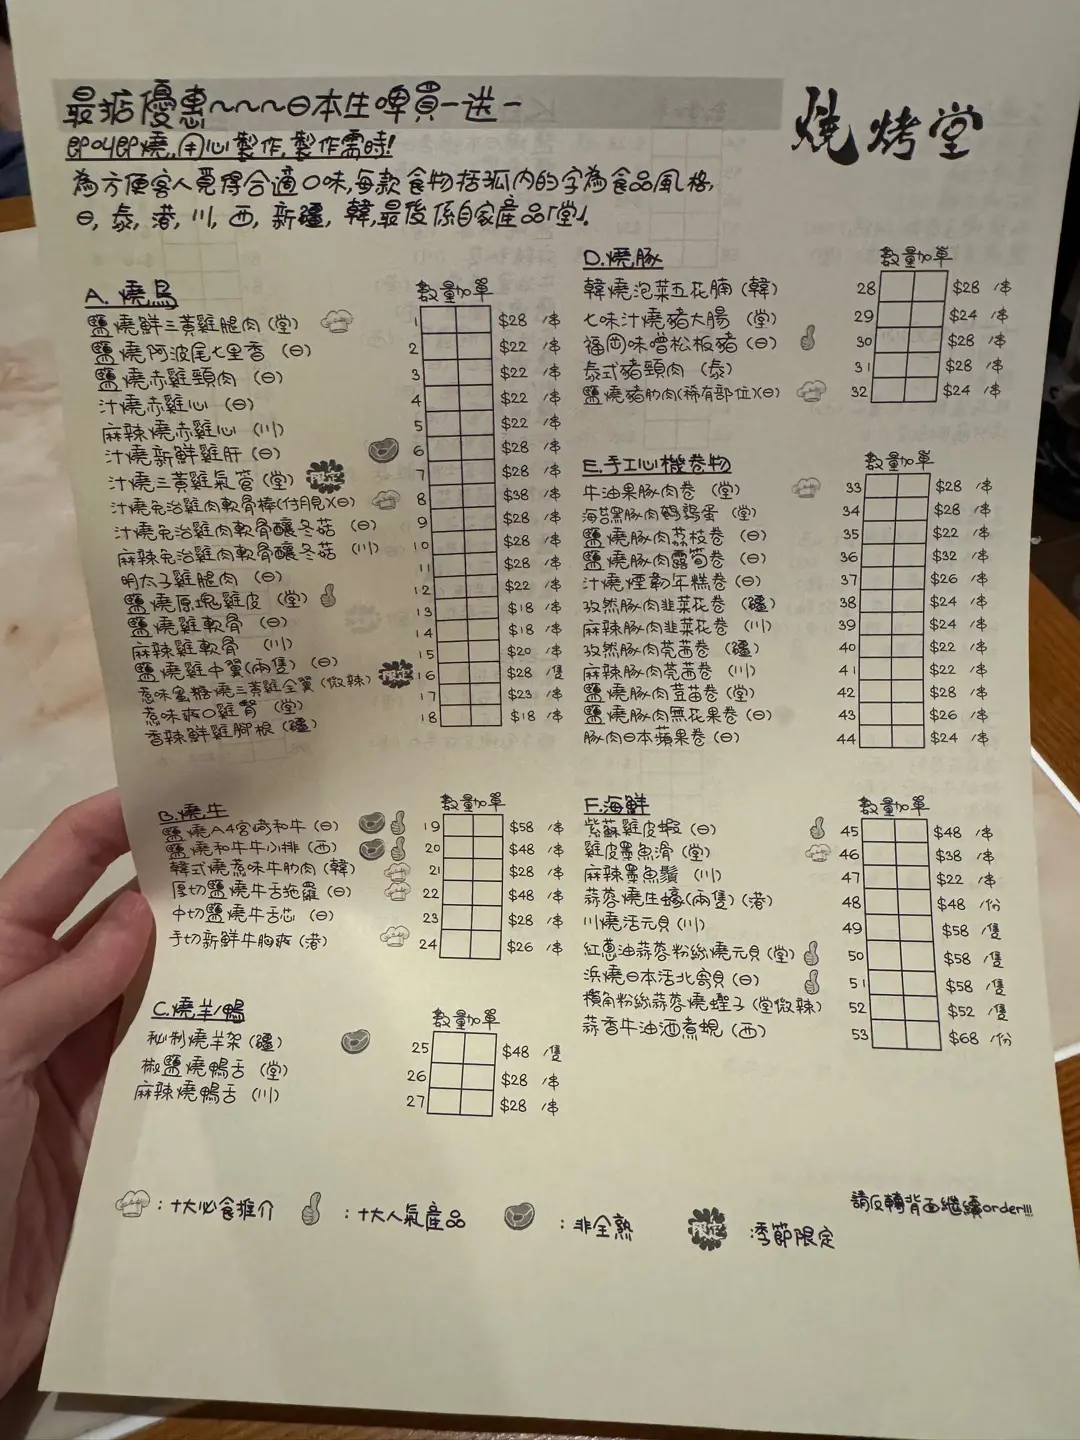 最抵優惠~~~日本生啤買一送一
燒烤堂
即叫即燒,用心製作,製作需時!
為方便客人覓得合適口味,每款食物括弧內的字為食品風格,
日, 泰, 港, 川, 西, 新疆, 韓,最後係自家產品「堂」.
A. 燒鳥 數量加單
鹽燒鮮三黃雞腿肉 (堂) 1 $28 /串
鹽燒阿波尾七里香 (日) 2 $22 /串
鹽燒赤雞頸肉 (日) 3 $22 /串
汁燒赤雞心 (日) 4 $22 /串
麻辣燒赤雞心 (川) 5 $22 /串
汁燒新鮮雞肝 (日) 6 $28 /串
汁燒三黃雞氣管 (堂) 限定 7 $28 /串
汁燒免治雞肉軟骨棒(付月見)(日) 8 $38 /串
汁燒免治雞肉軟骨釀冬菇 (日) 9 $28 /串
麻辣免治雞肉軟骨釀冬菇 (川) 10 $28 /串
明太子雞腿肉 (日) 11 $28 /串
鹽燒原塊雞皮 (堂) 12 $22 /串
鹽燒雞軟骨 (日) 13 $18 /串
麻辣雞軟骨 (川) 14 $18 /串
鹽燒雞中翼(兩隻) (日) 15 $20 /串
惹味蜜糖燒三黃雞全翼 (微辣) 限定 16 $28 /隻
惹味爽口雞腎 (堂) 17 $23 /串
香辣鮮雞腳根 (疆) 18 $18 /串
B. 燒牛 數量加單
鹽燒A4宮崎和牛 (日) 19 $58 /串
鹽燒和牛牛小排 (西) 20 $48 /串
韓式燒惹味牛肋肉 (韓) 21 $28 /串
厚切鹽燒牛舌拖羅 (日) 22 $48 /串
中切鹽燒牛舌芯 (日) 23 $28 /串
手切新鮮牛胸爽 (港) 24 $26 /串
C. 燒羊/鴨 數量加單
秘制燒羊架 (疆) 25 $48 /隻
椒鹽燒鴨舌 (堂) 26 $28 /串
麻辣燒鴨舌 (川) 27 $28 /串
D. 燒豚 數量加單
韓燒泡菜五花腩 (韓) 28 $28 /串
七味汁燒豬大腸 (堂) 29 $24 /串
福岡味噌松板豬 (日) 30 $28 /串
泰式豬頸肉 (泰) 31 $28 /串
鹽燒豬肋肉(稀有部位)(日) 32 $24 /串
E. 手工心機卷物 數量加單
牛油果豚肉卷 (堂) 33 $28 /串
海苔黑豚肉鵪鶉蛋 (堂) 34 $28 /串
鹽燒豚肉荔枝卷 (日) 35 $22 /串
鹽燒豚肉露筍卷 (日) 36 $32 /串
汁燒煙韌年糕卷 (日) 37 $26 /串
孜然豚肉韭菜花卷 (疆) 38 $24 /串
麻辣豚肉韭菜花卷 (川) 39 $24 /串
孜然豚肉芫茜卷 (疆) 40 $22 /串
麻辣豚肉芫茜卷 (川) 41 $22 /串
鹽燒豚肉荳苗卷 (堂) 42 $28 /串
鹽燒豚肉無花果卷 (日) 43 $26 /串
豚肉日本蘋果卷 (日) 44 $24 /串
F. 海鮮 數量加單
紫蘇雞皮蝦 (日) 45 $48 /串
雞皮墨魚滑 (堂) 46 $38 /串
麻辣墨魚鬚 (川) 47 $22 /串
蒜蓉燒生蠔(兩隻) (港) 48 $48 /份
川燒活元貝 (川) 49 $58 /隻
紅蔥油蒜蓉粉絲燒元貝 (堂) 50 $58 /隻
浜燒日本活北寄貝 (日) 51 $58 /隻
欖角粉絲蒜蓉燒蟶子 (堂微辣) 52 $52 /隻
蒜香牛油酒煮蜆 (西) 53 $68 /份
請反轉背面繼續order!!!
:十大必食推介 :十大人氣產品 :非全熟 限定 :季節限定